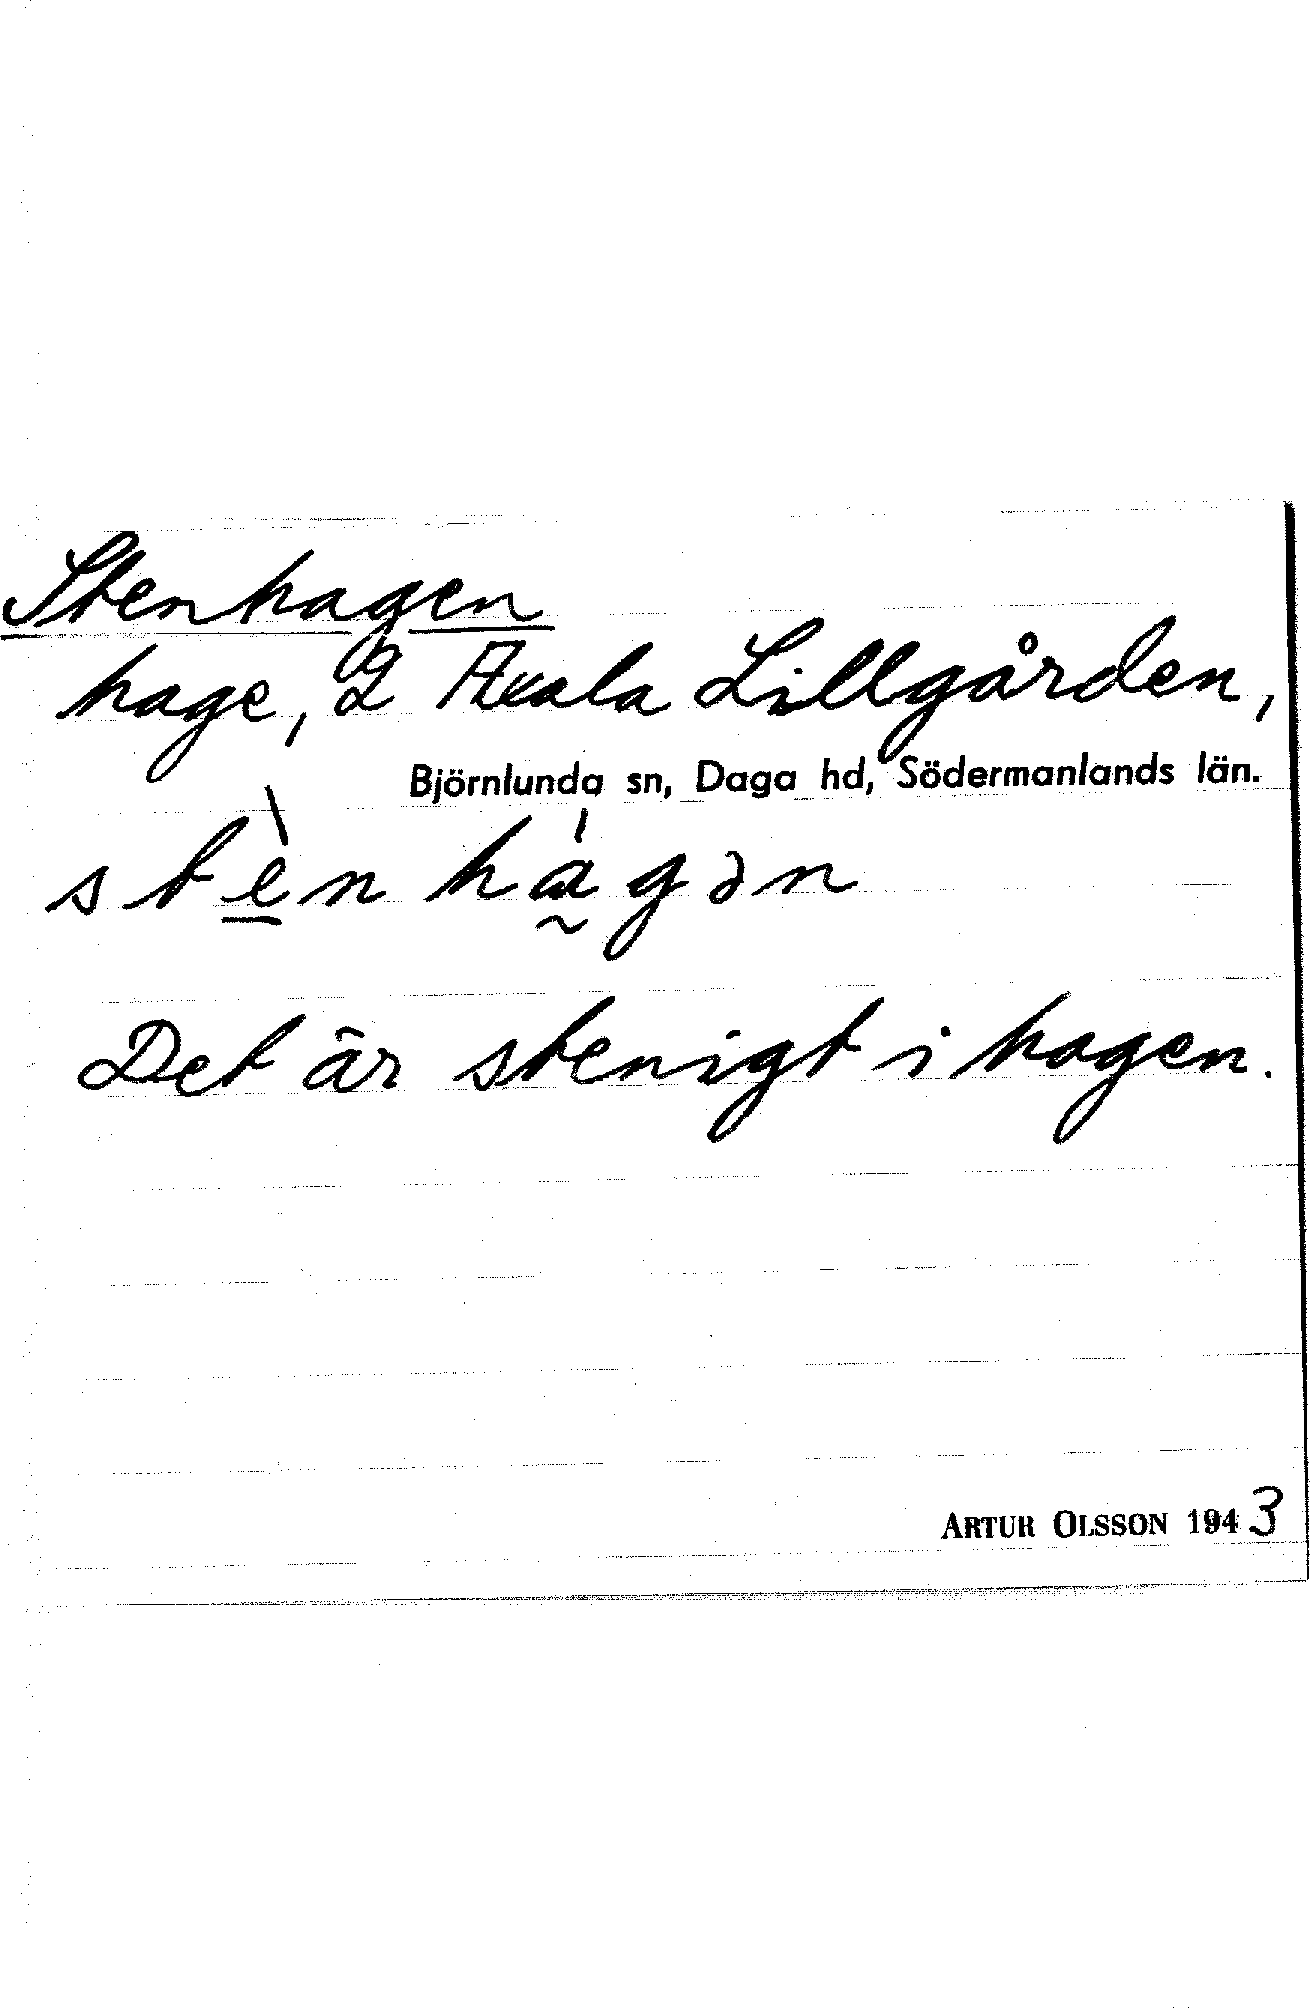 Stenhagen
hage, 2 Axala Lillgården,
Björnlunda sn, Daga hd, Södermanlands län.
stè̱nhá̰gən
Det är stenigt i hagen.
ARTUR OLSSON 1943